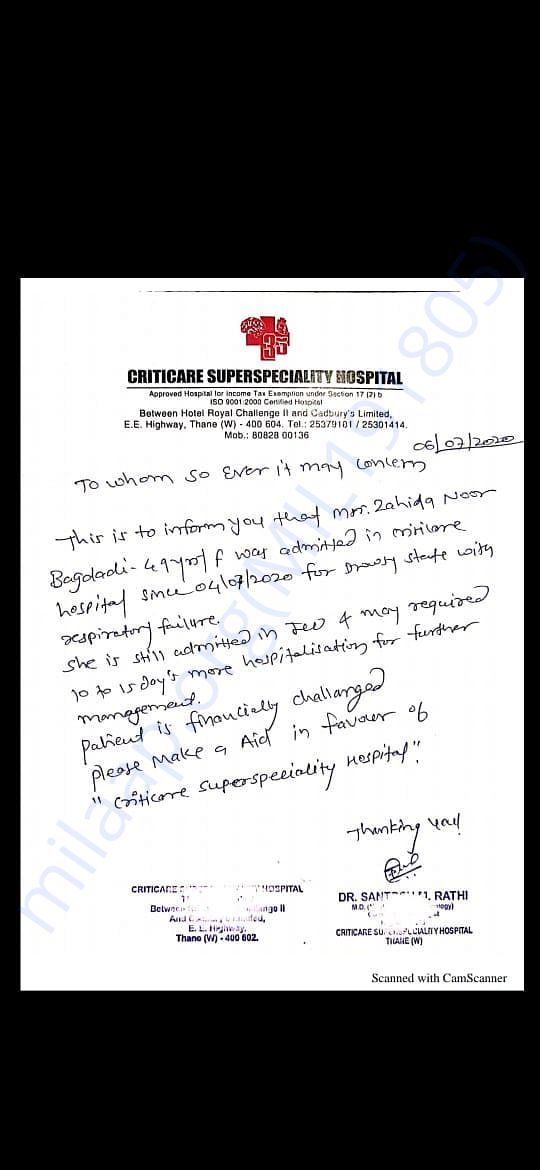 CRITICARE SUPERSPECIALITY HOSPITAL
Approved Hospital for Income Tax Exemption under Section 17 (2) b
ISO 9001:2000 Certified Hospital
Between Hotel Royal Challenge II and Cadbury's Limited,
E.E. Highway, Thane (W) - 400 604. Tel.: 25379101 / 25301414.
Mob.: 80828 00136
06/07/2020
To whom so Ever it may concern
This is to inform you that mrs. Zahida Noor
Bagdadi - 49 yrs/ F was admitted in criticare
hospital since 04/07/2020 for drowsy state with
respiratory failure.
She is still admitted in ICU & may required
10 to 15 day's more hospitalisation for further
management.
Patient is financially challanged
please make a Aid in favour of
"Criticare Superspeciality Hospital".
Thanking You!
CRITICARE HOSPITAL
Between II
And
E. E. Highway,
Thane (W) - 400 602.
DR. RATHI
M.D.
CRITICARE HOSPITAL
THANE (W)
Scanned with CamScanner
milaap.org(MIL191805)